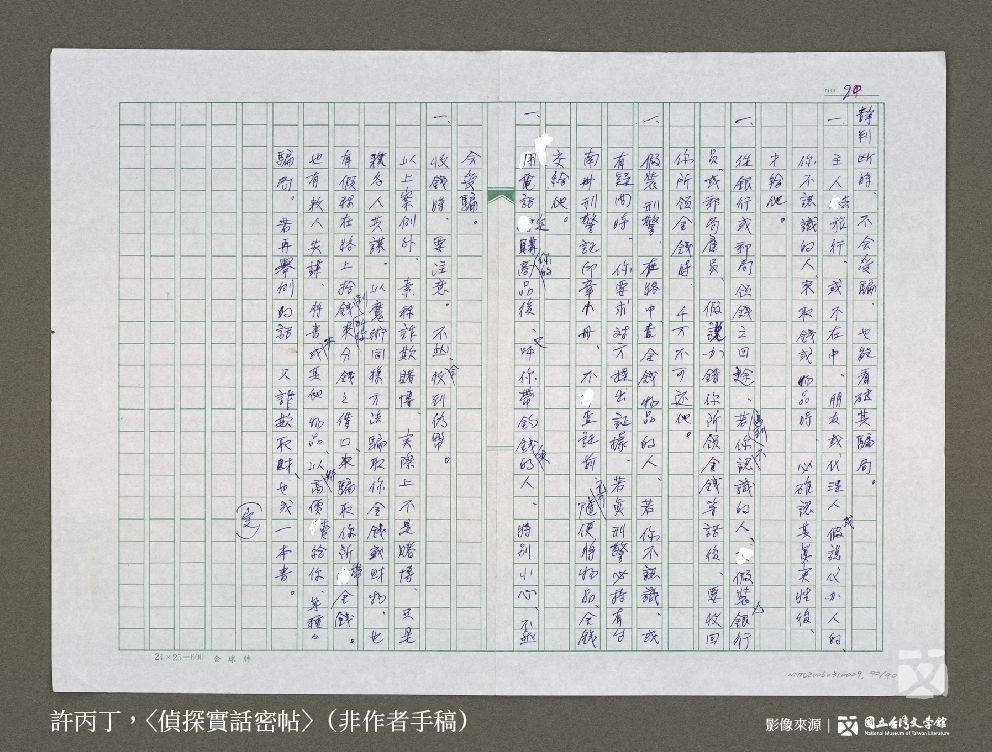 90
靜判斷時、不会受騙、也敢看破其騙局。
一、主人去旅行、或不在中、朋友或代理人假譌
你不認識的人、來取錢或物品時、必確認其真実性後、
才給他。
一、從銀行或郵局領錢之回途、若你認識的人、假裝銀行
員或郵局雇員、假說少錯你所領金錢等話後、要收回
你所領金錢時、千万不可还他。
一、假裝刑警、在路中查金錢物品的人、若你不認識、或
有疑問時、你要求对方提出証據、若眞刑警必持有台
南州刑警証印章小冊、不查証前、隨便將物品、金錢
交給他。
一、用電話購商品後、又呼你帶的錢的人、特別小心、不然
会受騙。
一、收錢時、要注意。不然、会收到偽幣。
以上案例外、素称詐欺賭博、実際上不是賭博、只是
数名人共謀、以魔術同樣方法騙取你金錢或財物。也
有假称在路上拾錢來分錢之借口、來騙取你所帶金錢。
也有数人共謀、将書或其他物品、以高價賣給你、等種々
騙局。若再舉例的話、又詐欺取財、也或一本書。
(完)
24×25=600
NMTL20060310029, 90/90
許丙丁，〈偵探實話密帖〉（非作者手稿）
影像來源｜國立台灣文學館
National Museum of Taiwan Literature